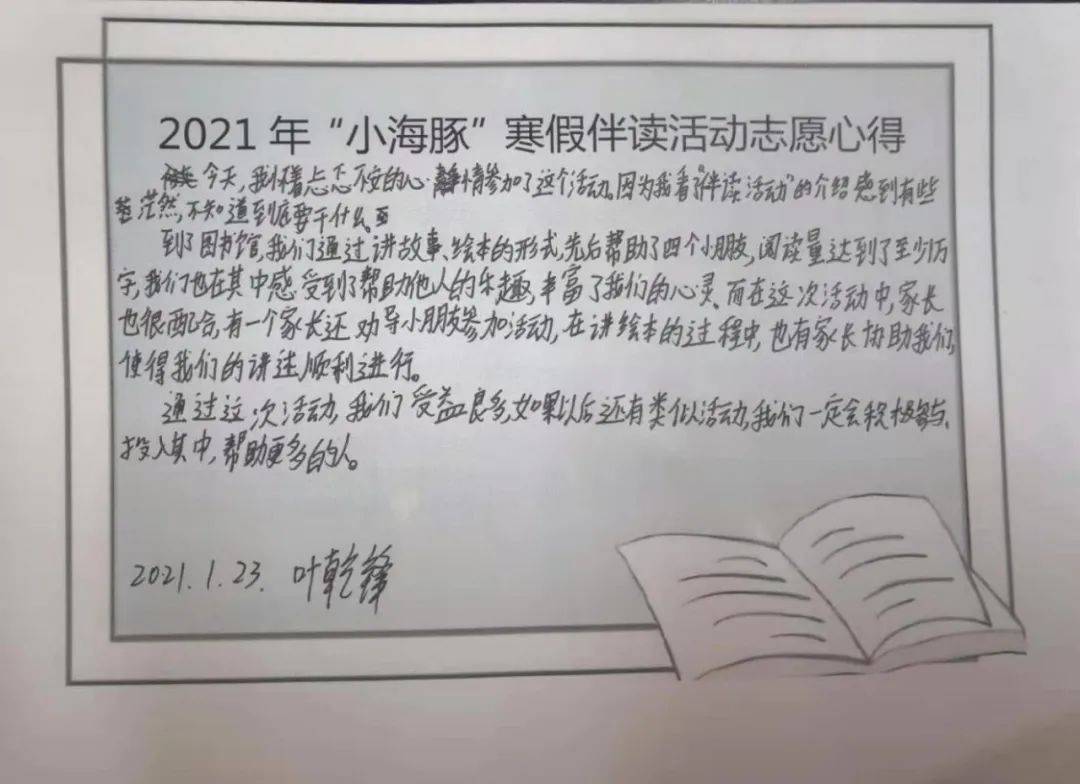 2021 年“小海豚”寒假伴读活动志愿心得
今天,我怀着忐忑不安的心情参加了这个活动。因为我看了“伴读活动”的介绍感到有些
茫然,不知道到底要干什么。
到了图书馆,我们通过讲故事、绘本的形式,先后帮助了四个小朋友,阅读量达到了至少1万
字,我们也在其中感受到了帮助他人的乐趣,丰富了我们的心灵、而在这次活动中,家长
也很配合,有一个家长还劝导小朋友参加活动,在讲绘本的过程中,也有家长协助我们,
使得我们的讲述顺利进行。
通过这次活动,我们受益良多,如果以后还有类似活动,我们一定会积极参与、
投入其中,帮助更多的人。
2021.1.23. 叶乾锋